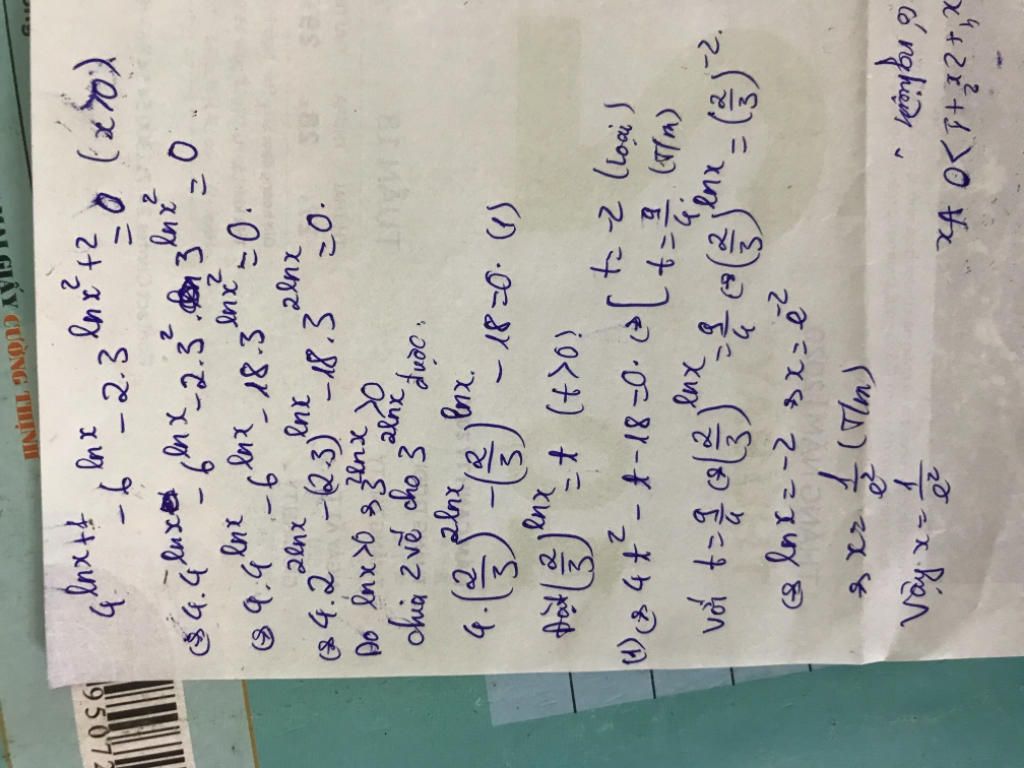 4^{lnx+1} - 6^{lnx} - 2.3^{lnx^2+2} = 0 (x>0)
⇔ 4.4^{lnx} - 6^{lnx} - 2.3^2.3^{lnx^2} = 0
⇔ 4.4^{lnx} - 6^{lnx} - 18.3^{lnx^2} = 0.
⇔ 4.2^{2lnx} - (2.3)^{lnx} - 18.3^{2lnx} = 0.
Do lnx>0 ⇒ 3^{2lnx}>0
chia 2 vế cho 3^{2lnx} được:
4.(2/3)^{2lnx} - (2/3)^{lnx} - 18=0. (1)
Đặt (2/3)^{lnx} = t (t>0)
(1) ⇔ 4t^2 - t - 18=0. ⇔ [ t=-2 (loại)
t=9/4. (T/m)
Với t=9/4 ⇔ (2/3)^{lnx} = 9/4 ⇔ (2/3)^{lnx} = (2/3)^{-2}.
⇔ lnx=-2 ⇒ x=e^{-2}
⇒ x=1/e^2 (T/m)
Vậy x=1/e^2
CƯỜNG THỊNH